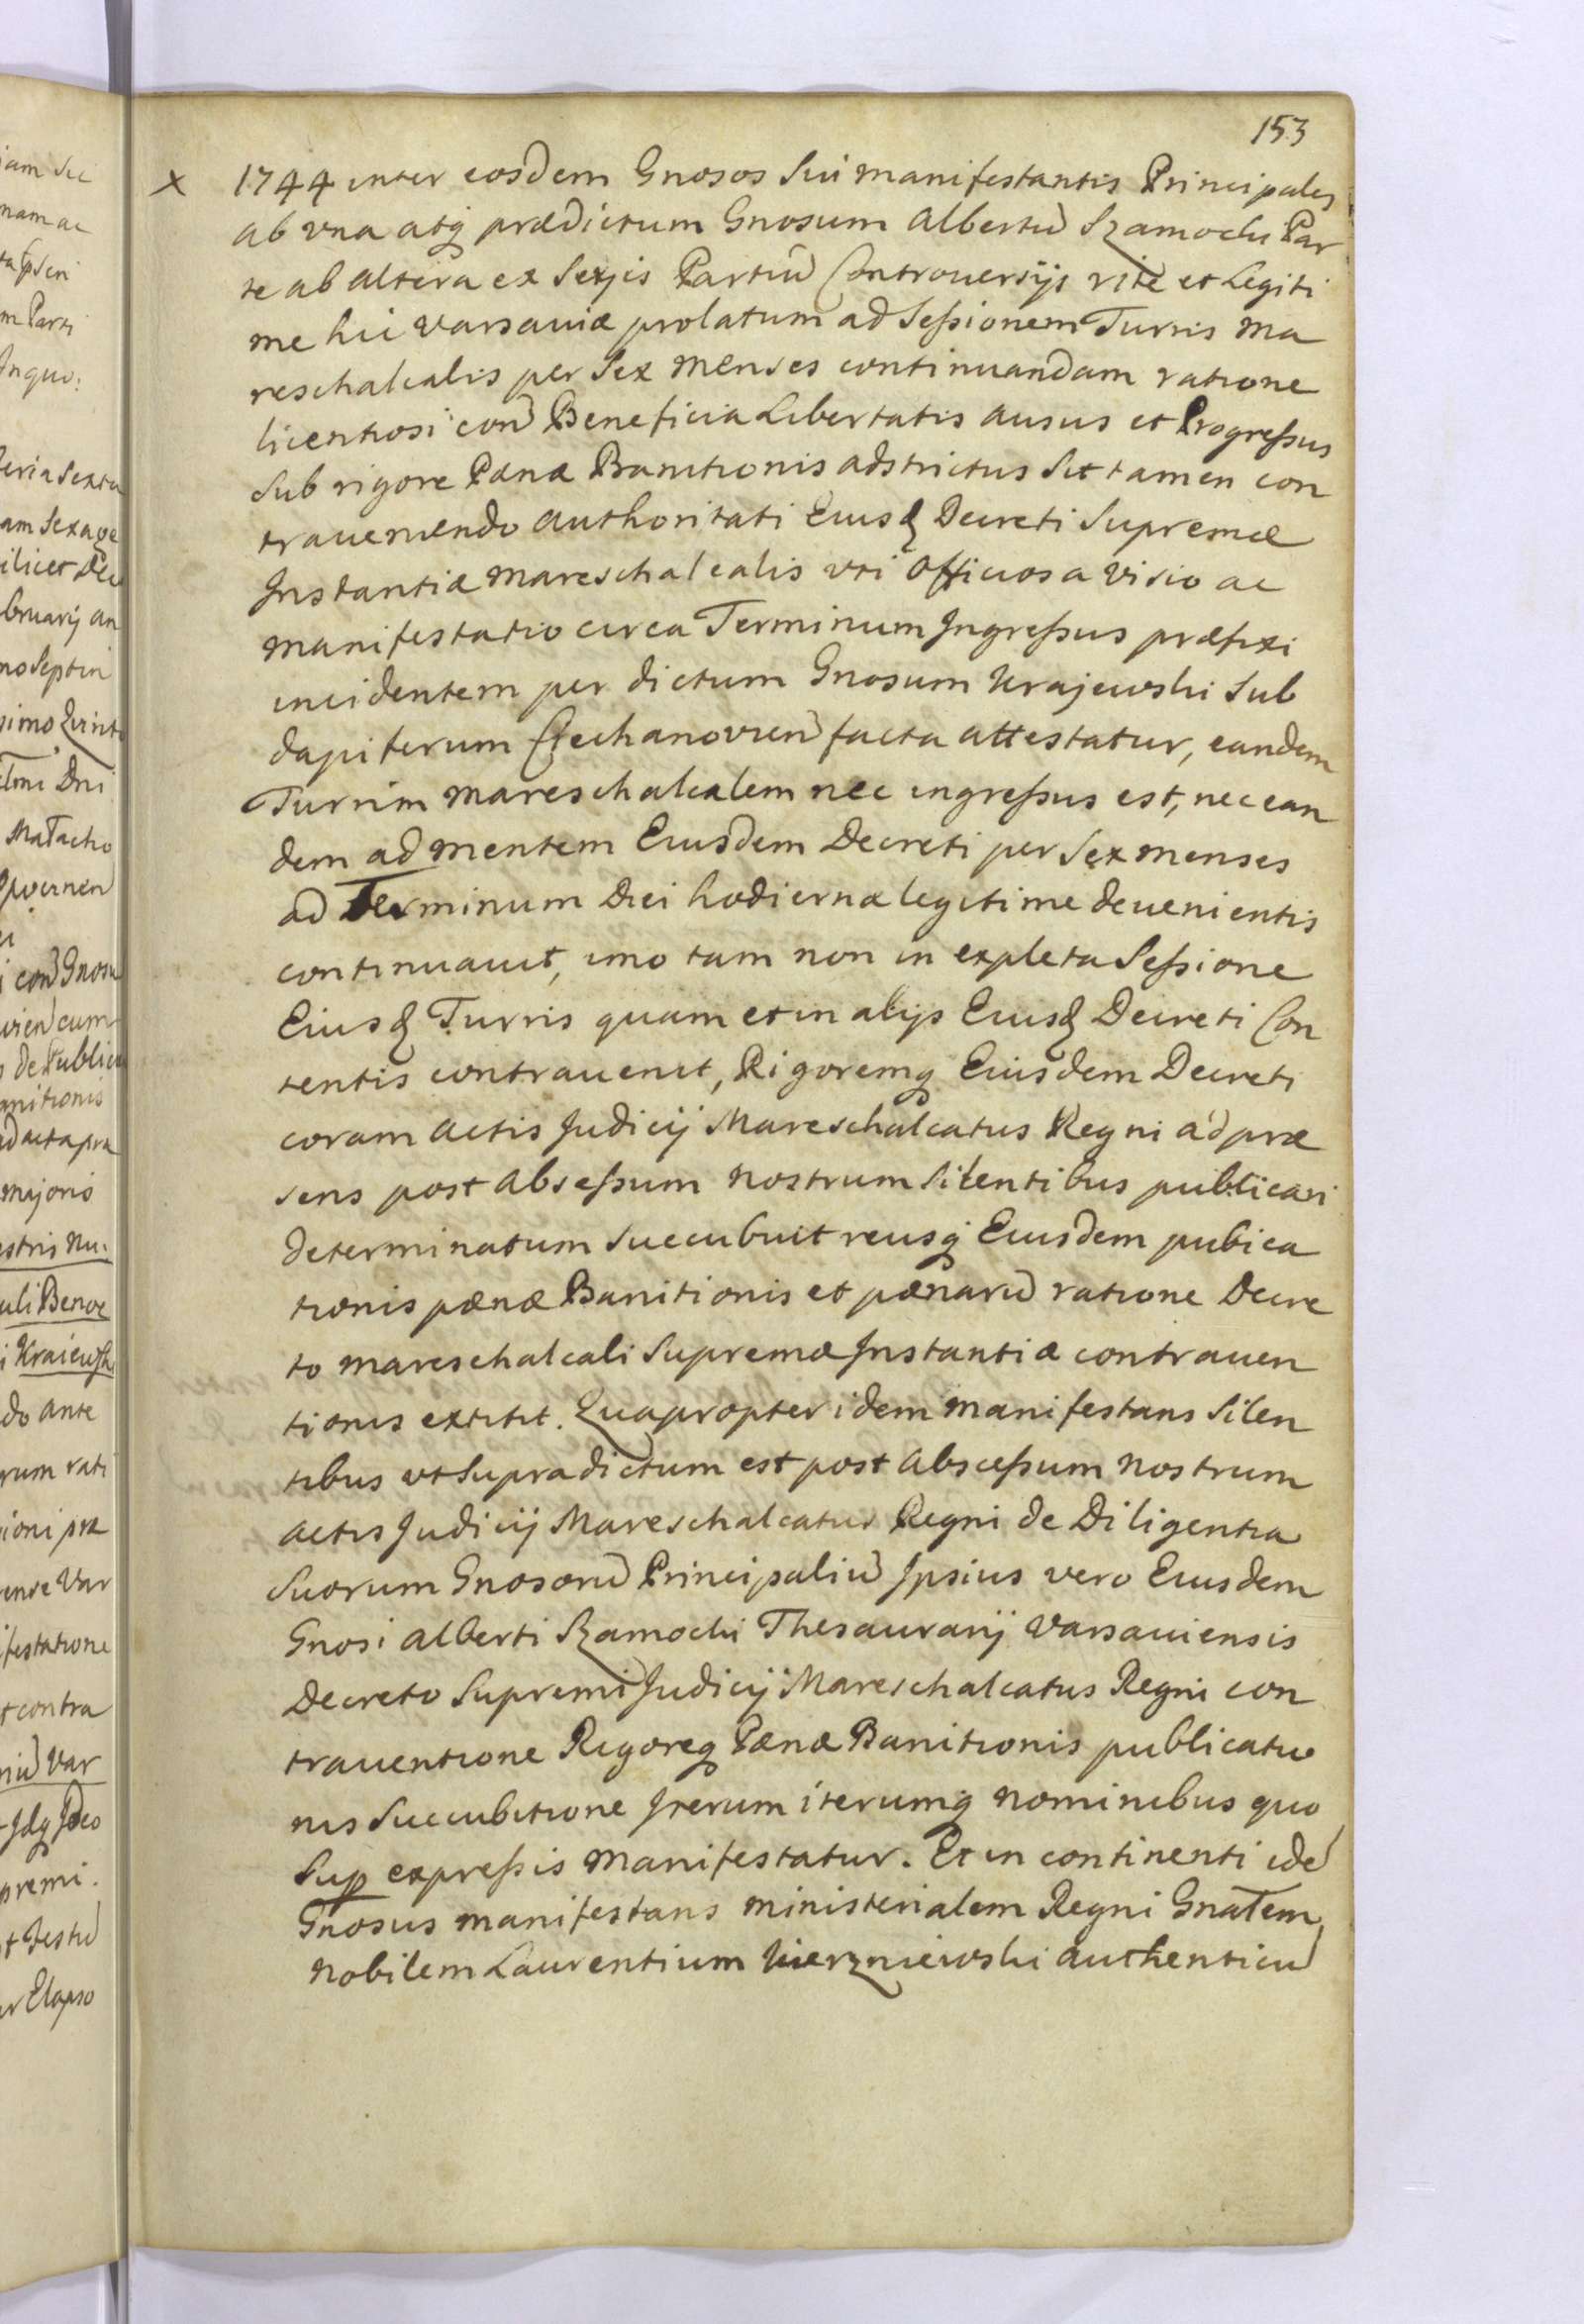 153
x 1744 inter eosdem Gnosos Sui manifestantis Principales
ab vna atq prædictum Gnosum Albertū Szamocki Par
te ab altera ex Sexjis Partiū Controuersijs rite et Legiti
me hic Varsauiæ prolatum ad Seſsionem Turris Ma
reschalcalis per Sex Menses continuandam ratione
licentiosi con Beneficia Libertatis ausus et Progreſsus
Sub rigore Pænæ Banitionis adstrictus Sit tamen con
traueniendo authoritati Eiusd Decreti Supremæ
Instantiæ Mareschalcalis vti Officiosa Visio ac
Manifestatio circa Terminum Ingreſsus præfixi
incidentem per dictum Gnosum Krajewski Sub
dapiferum Ciechanovien facta attestatur, eandem
Turrim Mareschalcalem nec ingreſsus est, nec ean
dem ad mentem Eiusdem Decreti per Sex menses
ad Terminum Diei hodiernæ legitime deuenientis
continuauit, imo tam non in expleta Seſsione
Eiusd Turris quam et in alijs Eiusd Decreti Con
tentis contrauenit, Rigoremq Eiusdem Decreti
coram Actis Judicij Mareschalcatus Regni ad præ
sens post Absceſsum Nostrum Silentibus publicari
determinatum Succubuit reusq Eiusdem pubica
tionis pænæ Banitionis et pænarū ratione Decre
to Mareschalcali Supremæ Instantiæ contrauen
tionis extitit. Quapropter idem Manifestans Silen
tibus vt Supradictum est post Absceſsum Nostrum
Actis Judicij Mareschalcatus Regni de Diligentia
Suorum Gnosorū Principaliū Ipsius vero Eiusdem
Gnosi Alberti Szamocki Thesaurarij Varsauiensis
Decreto Supremi Judicij Mareschalcatus Regni con
trauentione Rigoreq Pænæ Banitionis publicatio
nis Succubitione Iterum iterumq nominibus quo
Sup expreſsis Manifestatur. Et in continenti idē
Gnosus manifestans ministerialem Regni Gnalem
Nobilem Laurentium Kierzniewski authenticū